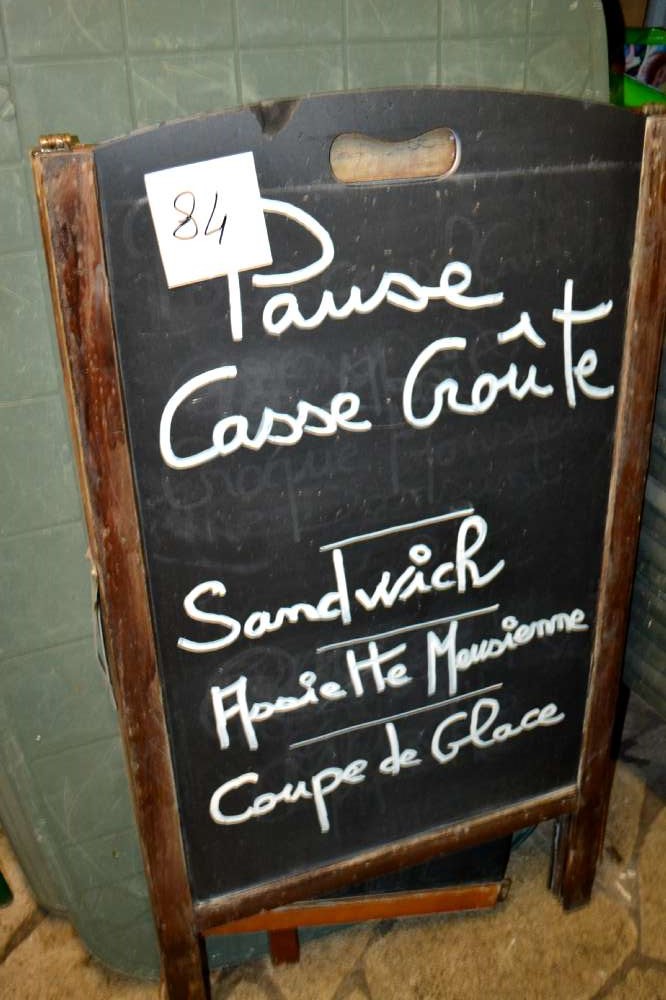 84
Pause
Casse Croûte
Sandwich
Assiette Meusienne
Coupe de Glace